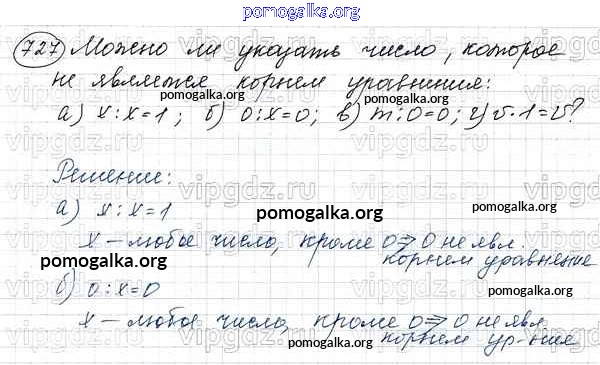 pomogalka.org
727 Можно ли указать число, которое
не является корнем уравнения:
pomogalka.org pomogalka.org
а) x : x = 1 ; б) 0 : x = 0; в) m : 0 = 0; г) v · 1 = v?
vipgdz.ru vipgdz.ru vipgdz.ru
Решение:
а) x : x = 1
pomogalka.org pomogalka.org
x – любое число, кроме 0 ⇒ 0 не явл.
pomogalka.org корнем уравнение
б) 0 : x = 0
pomogalka.org
x – любое число, кроме 0 ⇒ 0 не явл.
pomogalka.org корнем ур-ния